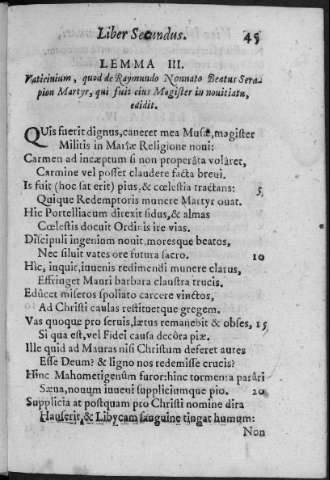 Liber Secundus. 45
LEMMA III.
Vaticinium, quod de Raymundo Nonnato Beatus Sera-
pion Martyr, qui fuit eius Magister in nouitiatu,
edidit.
QUis fuerit dignus, caneret mea Musæ, magister
Militis in Mariæ Religione noui:
Carmen ad incæptum si non properâta volâret,
Carmine vel posset claudere facta breui.
Is fuit (hoc sat erit) pius, & cœlestia tractans: 5
Quique Redemptoris munere Martyr ouat.
Hic Portelliacum direxit sidus, & almas
Cœlestis docuit Ordinis ire vias.
Discipuli ingenium nouit, moresque beatos,
Nec siluit vates ore futura sacro. 10
Hic, inquic, iuuenis redimendi munere clarus,
Effringet Mauri barbara claustra trucis.
Edûcet miseros spoliato carcere vinctos,
Ad Christi caulas restituetque gregem.
Vas quoque pro seruis, lætus remanebit & obses, 15
Si qua est, vel Fidei causa decôra piæ.
Ille quid ad Mauras nisi Christum deferet aures
Esse Deum? & ligno nos redemisse crucis?
Hinc Mahometigenûm furor: hinc tormenta parâri
Sæua, nouum inueni suppliciumque pio. 20
Supplicia at postquam pro Christi nomine dira
Hauserit, & Libycam sanguine tingat humum:
Non